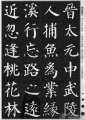 晉太元中武陵
人捕魚為業緣
溪行忘路之遠
近忽逢桃花林